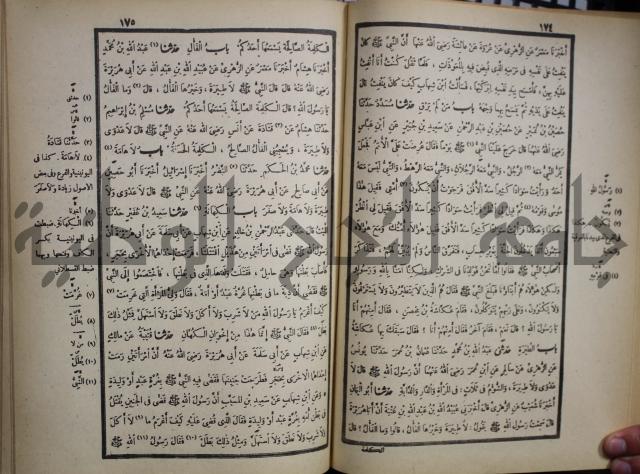 ١٧٤
أخبرنا معمر عن الزهري عن عروة عن عائشة رضي الله عنها أن النبي ﷺ كان
ينفث على نفسه في مرضه الذي قبض فيه بالمعوذات ، فلما ثقل كنت أنا أنفث
عليه بهن ، فأمسح بيد نفسه لبركتها ، فسألت ابن شهاب كيف كان ينفث قال
ينفث على يديه ثم يمسح بهما وجهه باب من لم يرق حدثنا مسدد حدثنا
حصين بن نمير عن حصين بن عبد الرحمن عن سعيد بن جبير عن ابن عباس
رضي الله عنهما قال خرج علينا النبي ﷺ يوما فقال عرضت علي الأمم فجعل
يمر النبي معه الرجل ، والنبي معه الرجلان ، والنبي معه الرهط ، والنبي ليس معه
أحد ورأيت سوادا كثيرا سد الأفق فرجوت أن يكون أمتي فقيل هذا
موسى وقومه ثم قيل لي انظر فرأيت سوادا كثيرا سد الأفق فقيل لي انظر
هكذا وهكذا فرأيت سوادا كثيرا سد الأفق فقيل هؤلاء أمتك ومع هؤلاء
سبعون ألفا يدخلون الجنة بغير حساب ، فتفرق الناس ولم يبين لهم ، فتذاكر
أصحاب النبي ﷺ فقالوا أما نحن فولدنا في الشرك ولكنا آمنا بالله ورسوله
ولكن هؤلاء هم أبناؤنا فبلغ النبي ﷺ فقال هم الذين لا يتطيرون ولا يسترقون
ولا يكتوون ، وعلى ربهم يتوكلون ، فقام عكاشة بن محصن ، فقال أمنهم أنا
يا رسول الله ؟ قال نعم ، فقام آخر فقال أمنهم أنا ؟ فقال سبقك بها عكاشة
باب الطيرة حدثني عبد الله بن محمد حدثنا عثمان بن عمر حدثنا يونس
عن الزهري عن سالم عن ابن عمر رضي الله عنهما أن رسول الله ﷺ قال لا
عدوى ولا طيرة ، والشؤم في ثلاث : في المرأة والدار والدابة حدثنا أبو اليمان
أخبرنا شعيب عن الزهري قال أخبرني عبيد الله بن عبد الله بن عتبة أن أبا هريرة
قال سمعت رسول الله ﷺ يقول : لا طيرة ، وخيرها الفأل ، قالوا وما الفأل ؟ قال
الكلمة
١٧٥
الكلمة الصالحة يسمعها أحدكم باب الفأل حدثنا (١) عبد الله بن محمد
أخبرنا هشام أخبرنا معمر عن الزهري عن عبيد الله بن عبد الله عن أبي هريرة
رضي الله عنه قال قال النبي ﷺ لا طيرة ، وخيرها الفأل ، قال (٢) وما الفأل
يا رسول الله ؟ قال الكلمة الصالحة يسمعها أحدكم حدثنا مسلم بن إبراهيم
حدثنا هشام عن (٣) قتادة عن أنس رضي الله عنه عن النبي ﷺ قال لا عدوى
ولا طيرة ، ويعجبني الفأل الصالح ، الكلمة الحسنة باب لا هامة (٤)
حدثنا محمد بن الحكم حدثنا النضر أخبرنا إسرائيل أخبرنا أبو حصين
عن أبي صالح عن أبي هريرة رضي الله عنه عن النبي ﷺ قال لا عدوى ولا
طيرة ولا هامة ولا صفر باب الكهانة حدثنا سعيد بن عفير حدثنا
الليث قال حدثني عبد الرحمن بن خالد عن ابن شهاب عن أبي سلمة عن أبي هريرة
أن رسول الله ﷺ قضى في امرأتين من هذيل اقتتلتا ، فرمت إحداهما الأخرى بحجر ،
فأصاب بطنها وهي حامل ، فقتلت ولدها الذي في بطنها ، فاختصموا إلى النبي
ﷺ فقضى أن دية ما في بطنها غرة عبد أو أمة ، فقال ولي المرأة التي غرمت (٧)
كيف أغرم يا رسول الله من لا شرب ولا أكل ولا نطق ولا استهل فمثل ذلك
بطل (٨) فقال النبي ﷺ إنما هذا من إخوان الكهان حدثنا قتيبة عن مالك
عن ابن شهاب عن أبي سلمة عن أبي هريرة رضي الله عنه أن امرأتين رمت
إحداهما الأخرى بحجر فطرحت جنينها فقضى فيه النبي ﷺ بغرة عبد أو وليدة
وعن ابن شهاب عن سعيد بن المسيب أن رسول الله ﷺ قضى في الجنين يقتل
في بطن أمه بغرة عبد أو وليدة فقال الذي قضي عليه كيف أغرم ما (٩) لا أكل
ولا شرب ولا نطق ولا استهل ومثل ذلك بطل (١٠) فقال رسول (١١) الله ﷺ
(١) حدثني
(٢) قالوا
(٣) حدثنا قتادة
(٤) لا هامة . كذا في
اليونينية والفرع وفي بعض
الأصول زيادة ولا صفر
(٥) أخبرنا
(٦) الكهانة . ضبطت
في اليونينية بكسر
الكاف وفتحها وبهما
ضبط القسطلاني
(٧) غرمت
(٨) يطل
(٩) من لا
(١٠) يطل
(١١) النبي